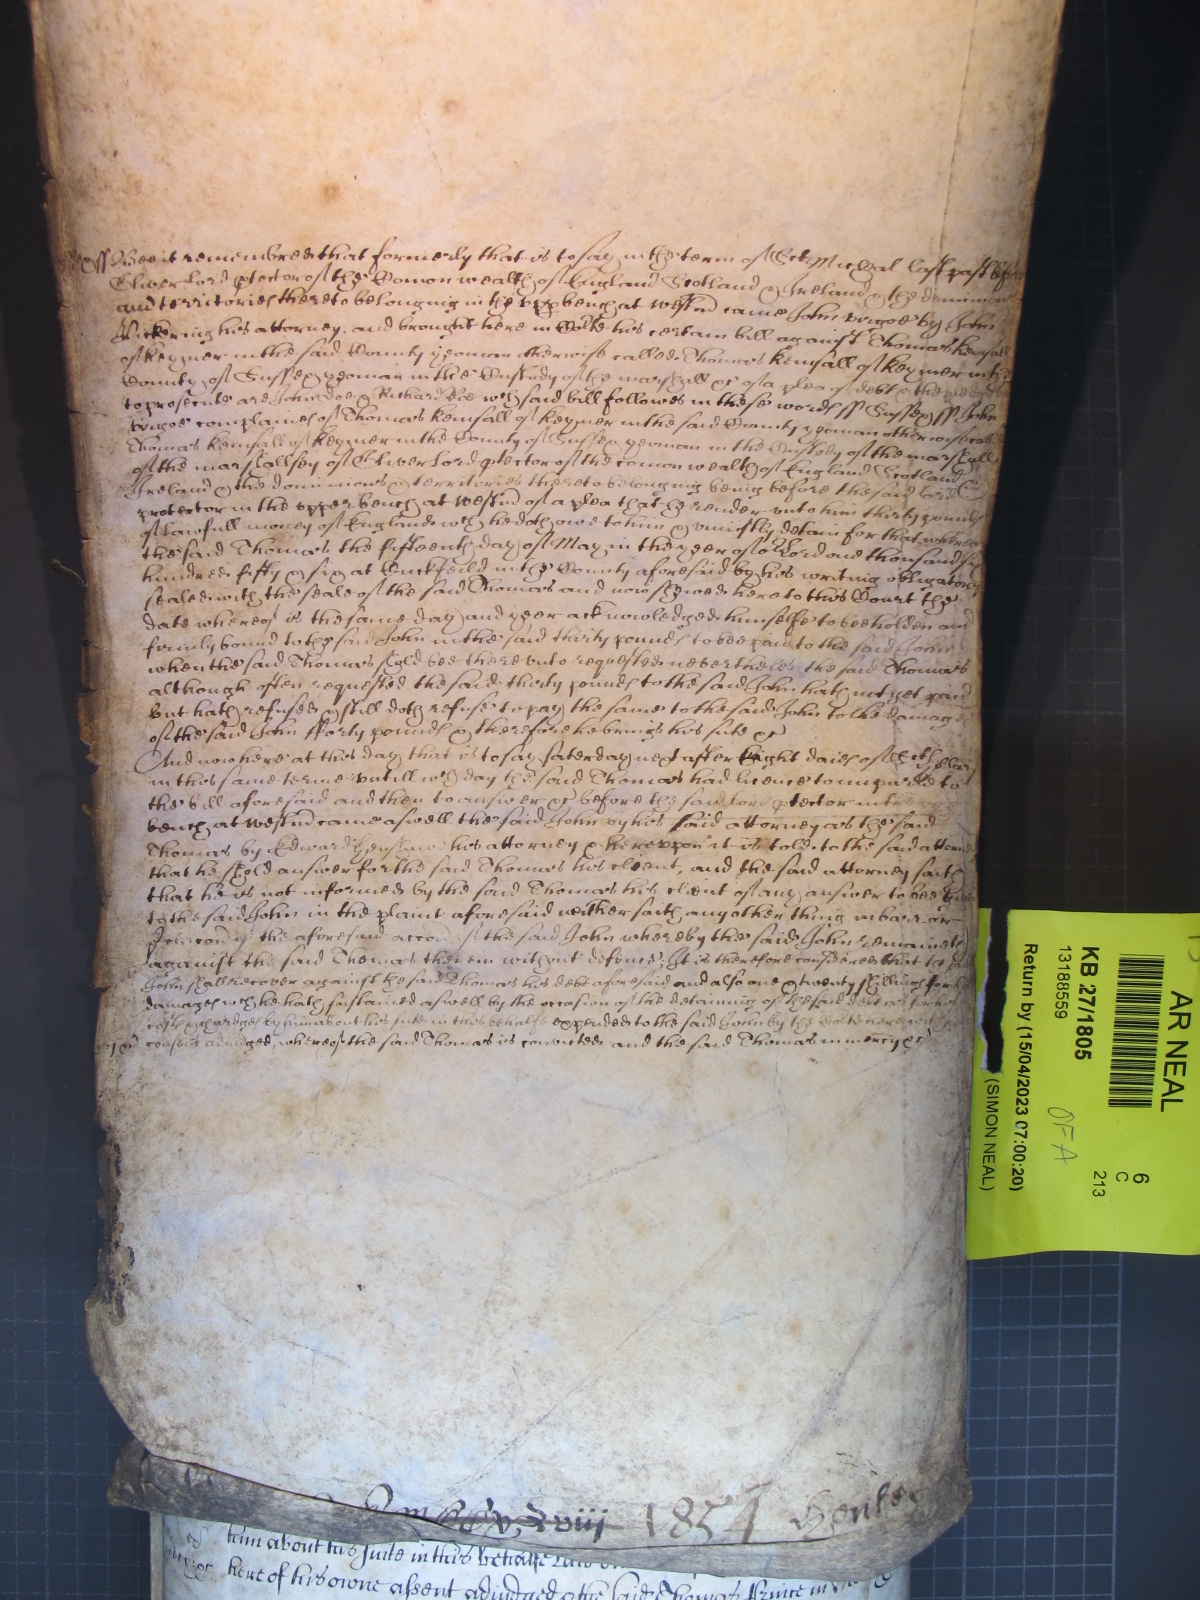 Sussex ss Bee it remembred that formerly that is to say in the term of Sct Michael last past before
Oliver Lord ptector of the Comon wealth of England Scotland & Ireland & the dominions
and territories thereto belonging in the upp bench at Westm came John Virgoe by John
Pickering his attorney, and brought here in Court his certain bill against Thomas Kemsall
of Keymer in the said County yeoman otherwise called Thomas Kemsall of Keymer in the
County of Sussex yeoman in the Custody of the marshall &c of a plea of debt & the pledges
to prosecute are John Doe & Richard Roe wch said bill followes in these words ss Sussex ss John
Virgoe complaines of Thomas Kemsall of Keymer in the said County yeoman otherwise called
Thomas Kemsall of Keymer in the County of Sussex yeoman in the Custody of the marshall
of the marshallsey of Oliver Lord ptector of the comon wealth of England Scotland &
Ireland & the dominions & territories thereto belonging being before the said Lord
protector in the upper bench at Westm of a plea that he render unto him thirty pounds
of lawfull money of England wch he doth owe to him & uniustly detain for that whereas
the said Thomas the fifteenth day of May in the yeer of or Lord one thousand six
hundred fifty & six at Cuckfeild in the County aforesaid by his writing obligatory
sealed with the seale of the said Thomas and now shewed here to this Court the
date whereof is the same day and yeer acknowledged himselfe to bee holden and
firmly bound to the said John in the said thirty pounds to bee paid to the said John
when the said Thomas shold bee there unto requested neverthelesse the said Thomas
although often requested the said thirty pounds to the said John hath not yet paid
but hath refused & still doth refuse to pay the same to the said John to the damage
of the said John fforty pounds & therefore he brings his sute &c
And now here at this day that is to say Saterday next after Eight daies of St
in this same terme untill wch day the said Thomas had licence to imparle to
the bill aforesaid and then to answer &c before the said Lord ptector in the
bench at Westm came aswell the said John by his said attorney as the said
Thomas by Edward his attorney & hereuppon it is told to the said attorney
that he shold answer for the said Thomas his client, and the said attorney saith
that he is not informed by the said Thomas his client of any answer to bee given
to the said John in the plaint aforesaid neither saith any other thing in bar or
of the aforesaid accon of the said John whereby the said John remaineth
against the said Thomas therein without defence. It is therefore considered that the said
John shall recover against the said Thomas his debt aforesaid and also one & twenty shillings for his
damages wch he hath sustained aswell by the occasion of the detaining of the said debt as for his
costs & charges by him about his sute in this behalfe expended to the said John by the Court here
consent adiudged, whereof the said Thomas is convicted and the said Thomas in mercy &c
1854 Henley
him about his suite in this behalfe
here of his owne assent adiudged & the said Thomas Prince in
AR NEAL
KB 27/1805
13188559
Return by (15/04/2023 07:00:20)
(SIMON NEAL)
OFA
6
C
213